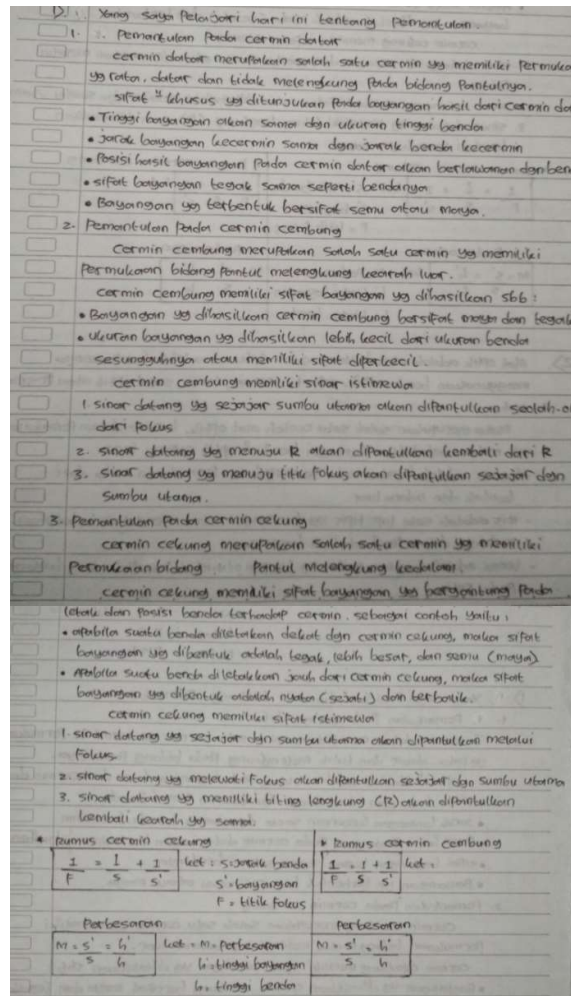 D. Yang saya Pelajari hari ini tentang Pemantulan.
1. : Pemantulan Pada cermin datar
cermin datar merupakan salah satu cermin yg memiliki Permuka
yg rata, datar dan tidak melengkung Pada bidang Pantulnya.
sifat" khusus yg ditunjukan Pada bayangan hasil dari cermin da
• Tinggi bayangan akan sama dgn ukuran tinggi benda
• Jarak bayangan kecermin sama dgn Jarak benda kecermin
• Posisi hasil bayangan Pada cermin datar akan berlawanan dgn ben
• sifat bayangan tegak sama seperti bendanya
• Bayangan yg terbentuk bersifat semu atau maya.
2. Pemantulan Pada cermin cembung
cermin cembung merupakan salah satu cermin yg memiliki
Permukaan bidang Pantul melengkung kearah luar.
cermin cembung memiliki sifat bayangan yg dihasilkan sbb :
• Bayangan yg dihasilkan cermin cembung bersifat maya dan tegak
• ukuran bayangan yg dihasilkan lebih kecil dari ukuran benda
sesungguhnya atau memiliki sifat diperkecil.
cermin cembung memiliki sinar istimewa
1. sinar datang yg sejajar sumbu utama akan dipantulkan seolah-o
dari fokus
2. sinar datang yg menuju R akan dipantulkan kembali dari R
3. sinar datang yg menuju titik fokus akan dipantulkan sejajar dgn
sumbu utama.
3. Pemantulan Pada cermin cekung
cermin cekung merupakan salah satu cermin yg memiliki
Permukaan bidang Pantul Melengkung kedalam.
cermin cekung memiliki sifat bayangan yg bergantung Pada
letak dan Posisi benda terhadap cermin. sebagai contoh yaitu :
• apabila suatu benda diletakan dekat dgn cermin cekung, maka sifat
bayangan yg dibentuk adalah tegak, lebih besar, dan semu (maya)
• Apabila suatu benda diletakkan jauh dari cermin cekung, maka sifat
bayangan yg dibentuk adalah nyata (sejati) dan terbalik.
cermin cekung memiliki sifat istimewa
1. sinar datang yg sejajar dgn sumbu utama akan dipantulkan melalui
Fokus
2. sinar datang yg melewati Fokus akan dipantulkan sejajar dgn sumbu utama
3. sinar datang yg memiliki titing lengkung (R) akan dipantulkan
kembali kearah yg sama.
* Rumus cermin cekung
1/F = 1/s + 1/s' ket : s = Jarak benda
s' = bayangan
F = titik fokus
Perbesaran
M = s'/s = h'/h ket = M = Perbesaran
h' = tinggi bayangan
h = tinggi benda
* Rumus cermin cembung
1/F = 1/s + 1/s' ket :
Perbesaran
M = s'/s = h'/h